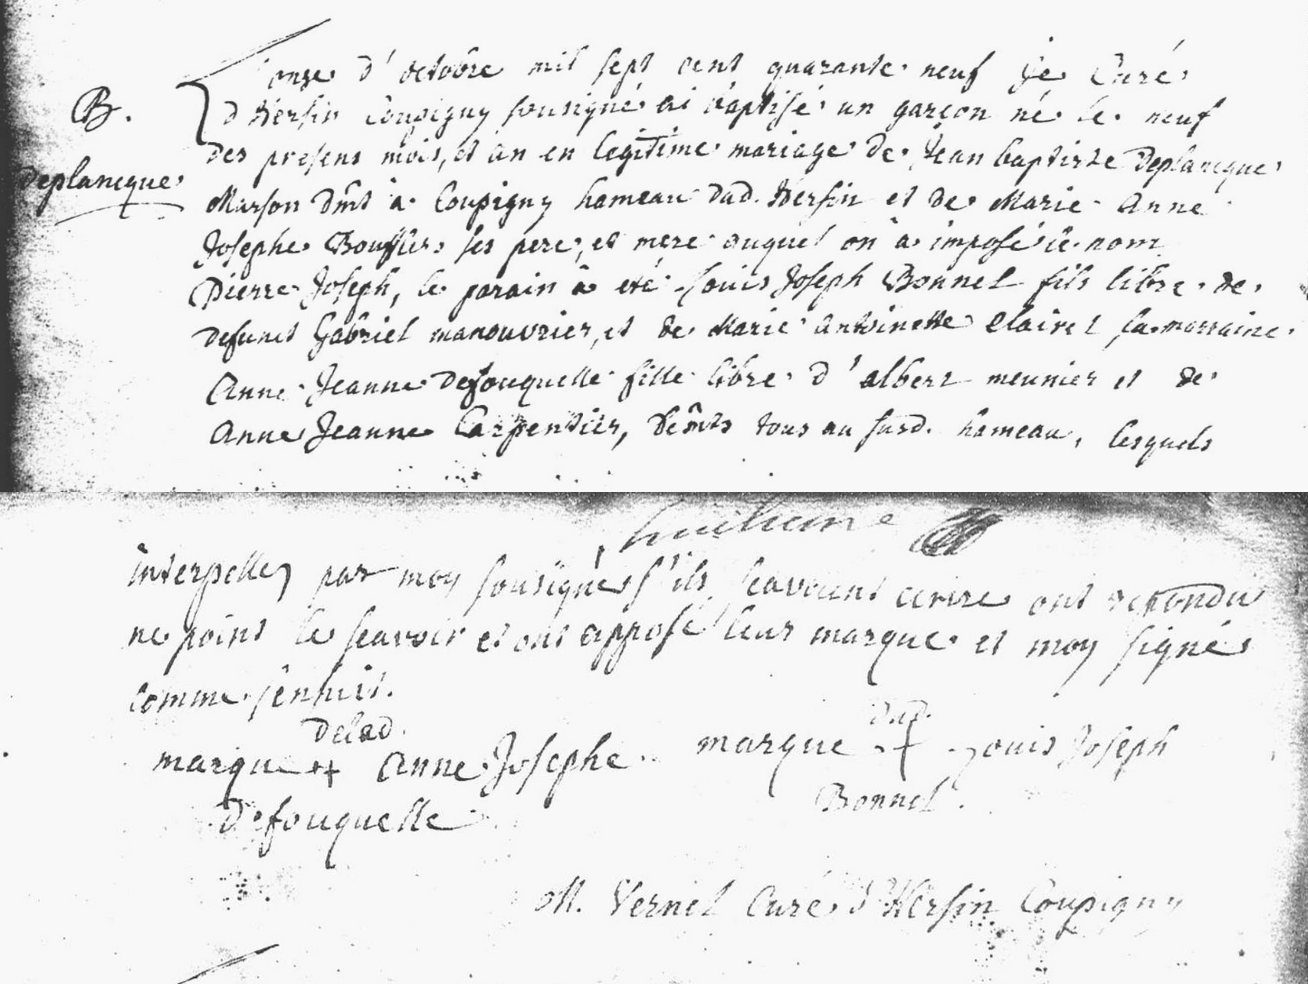 B.
deplancque
L'onze d'octobre mil sept cent quarante neuf je Curé
d'Hersin Coupigny sousigné ai baptisé un garçon né le neuf
des presens mois, et an en legitime mariage de Jean baptiste deplancque
Marson dmt à Coupigny hameau dud. Hersin et de Marie Anne
Josephe Bouffler ses pere, et mere auquel on a imposé le nom
Pierre Joseph, le parain a eté Louis Joseph Bonnel fils libre de
defunct Gabriel manouvrier, et de Marie Antoinette Clairet, la marraine
Anne Jeanne Defouquelle fille libre d'albert meunier et de
Anne Jeanne Carpentier, demts tous au susd. hameau, lesquels
interpellez par moy sousigné s'ils scavoient ecrire ont repondu
ne point le scavoir et ont apposé leur marque et moy signé
comme s'ensuit.
delad.
marque + Anne Josephe
Defouquelle
dud.
marque + Louis Joseph
Bonnel.
M. Vernel Curé d'Hersin Coupigny